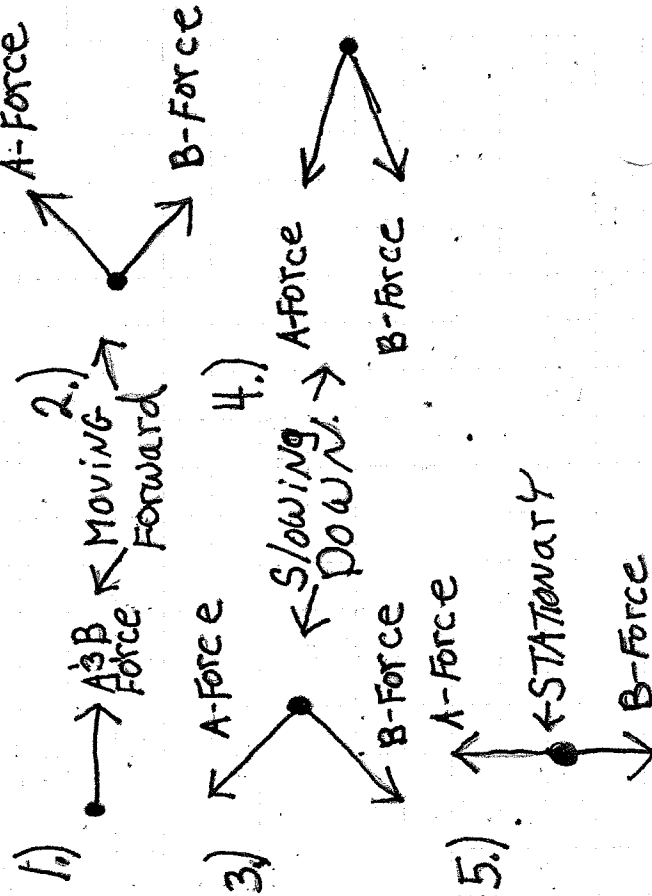 1.)
A & B
Force
MOVING
Forward
2.)
A-Force
B-Force
3.)
A-Force
B-Force
Slowing
DOWN.
4.)
A-Force
B-Force
5.)
A-Force
STATIONarY
B-Force